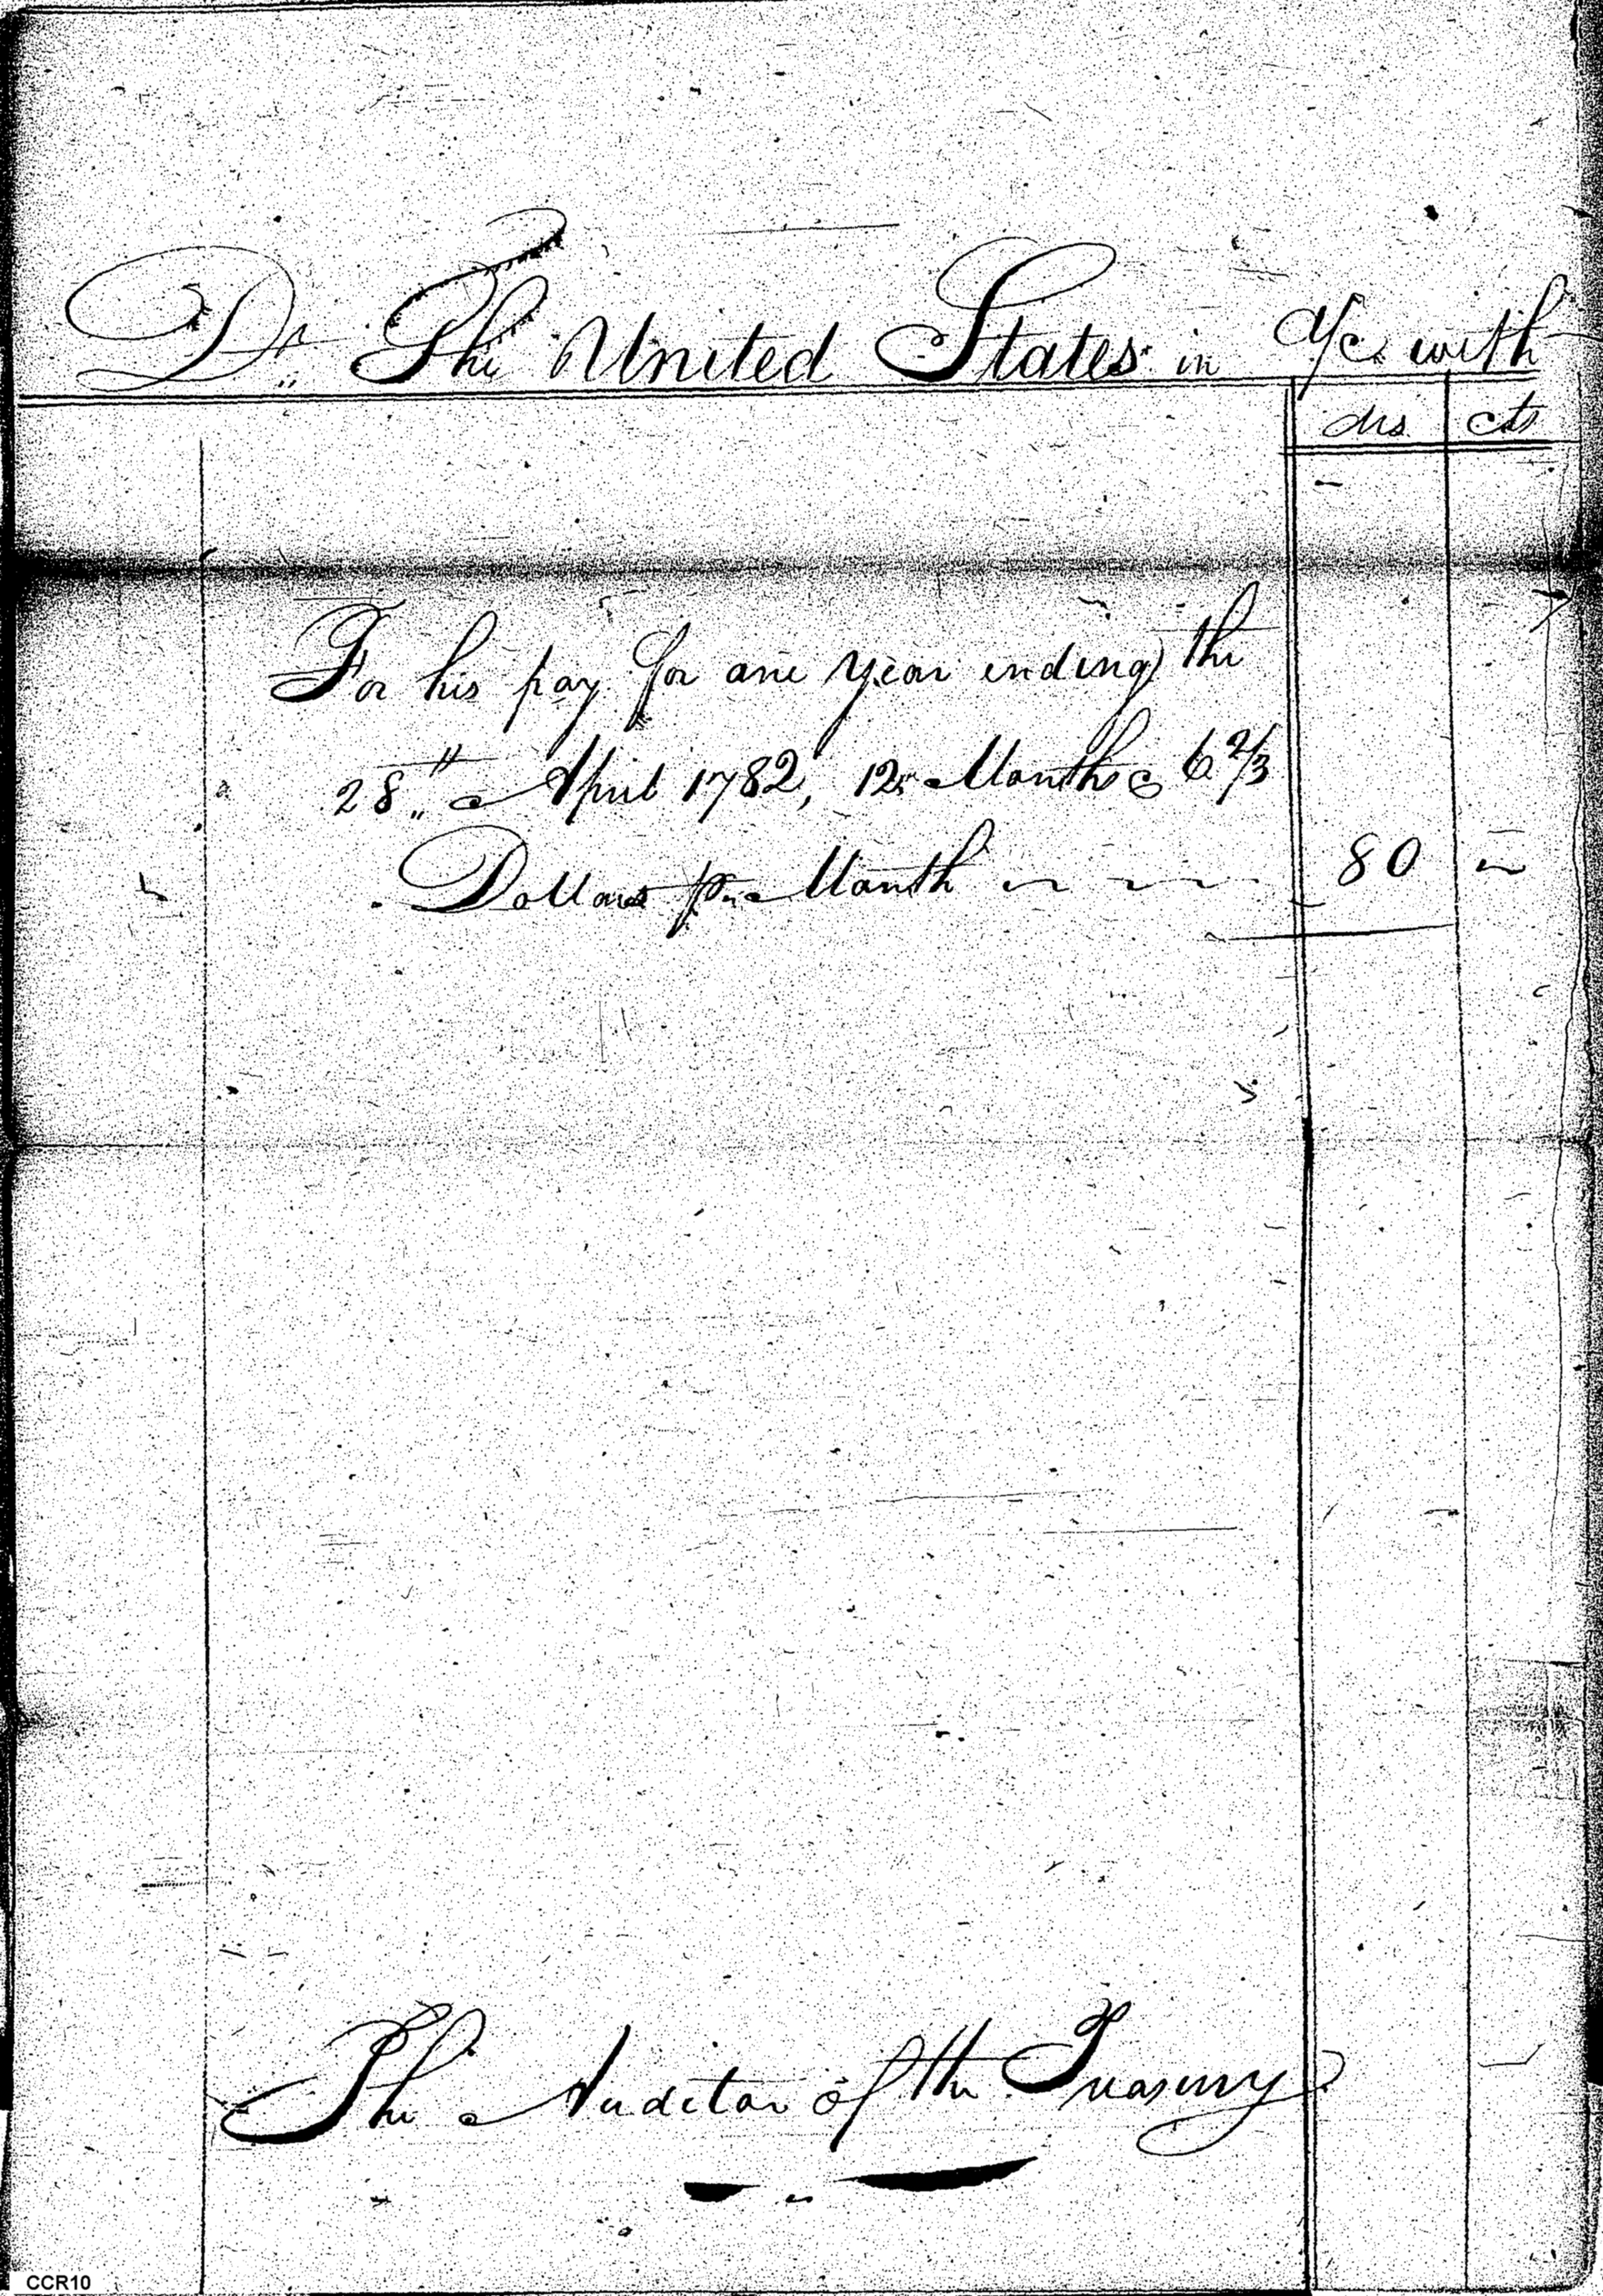 Dr The United States in A/c with
drs cts
For his pay for one year ending the
28th April 1782, 12 Months @ 6 2/3
Dollars pr Month 80
The Auditor of the Treasury
CCR10